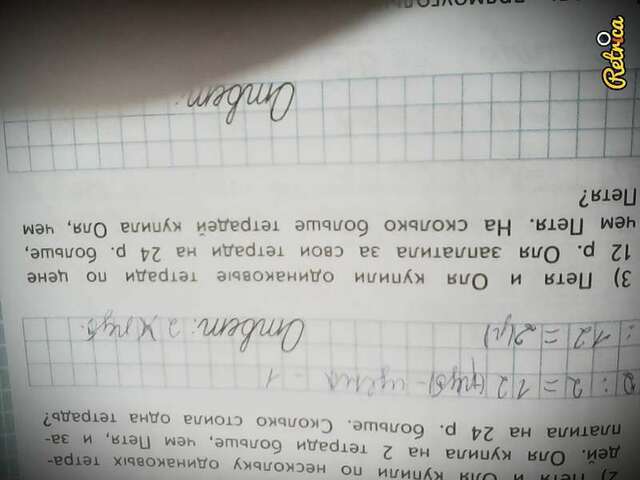 2) Петя и Оля купили по нескольку одинаковых тетра-
дей. Оля купила на 2 тетради больше, чем Петя, и за-
платила на 24 р. больше. Сколько стоила одна тетрадь?
: 2 = 12 (руб) - цена 1 -
: 12 = 2(
Ответ: 2
3) Петя и Оля купили одинаковые тетради по цене
12 р. Оля заплатила за свои тетради на 24 р. больше,
чем Петя. На сколько больше тетрадей купила Оля, чем
Петя?
Ответ:
Retrica